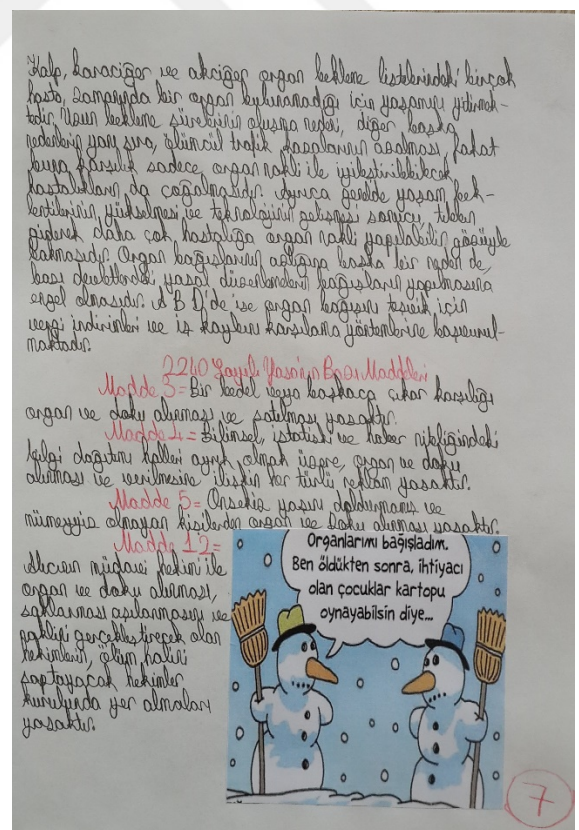 Kalp, karaciğer ve akciğer organ bekleme listelerindeki birçok
hasta, zamanında bir organ bulunamadığı için yaşamını yitirmek-
tedir. Uzun bekleme sürelerinin oluşma nedeni, diğer başka
nedenlerin yanı sıra, ölümcül trafik kazalarının azalması, fakat
buna karşılık sadece organ nakli ile iyileştirilebilecek
hastalıkların da çoğalmasıdır. Ayrıca genelde yaşam bek-
lentilerinin yükselmesi ve teknolojinin gelişmesi sonucu,
giderek daha çok hastalığa organ nakli yapılabilir gözüyle
bakmasıdır. Organ bağışlarının azlığına başka bir neden de,
bazı devletlerdeki yasal düzenlemelerin bağışların yapılmasına
engel olmasıdır. ABD'de ise organ bağışını teşvik için
vergi indirimleri ve iş kaybını karşılama yöntemlerine başvurul-
maktadır.
2240 Sayılı Yasa'nın Bazı Maddeleri
Madde 3= Bir bedel veya başkaca çıkar karşılığı
organ ve doku alınması ve satılması yasaktır.
Madde 4= Bilimsel, istatiski ve haber niteliğindeki
bilgi dağıtımı halleri ayrık olmak üzere, organ ve doku
alınması ve verilmesine ilişkin her türlü reklam yasaktır.
Madde 5= Onsekiz yaşını doldurmamış ve
mümeyyiz olmayan kişilerden organ ve doku alınması yasaktır.
Madde 12=
Alıcının müdavi hekimi ile
organ ve doku alınması,
saklanması aşılanmasını ve
naklini gerçekleştirecek olan
hekimlerin, ölüm halini
saptayacak hekimler
kurulunda yer almaları
yasaktır.
Organlarımı bağışladım.
Ben öldükten sonra, ihtiyacı
olan çocuklar kartopu
oynayabilsin diye...
7